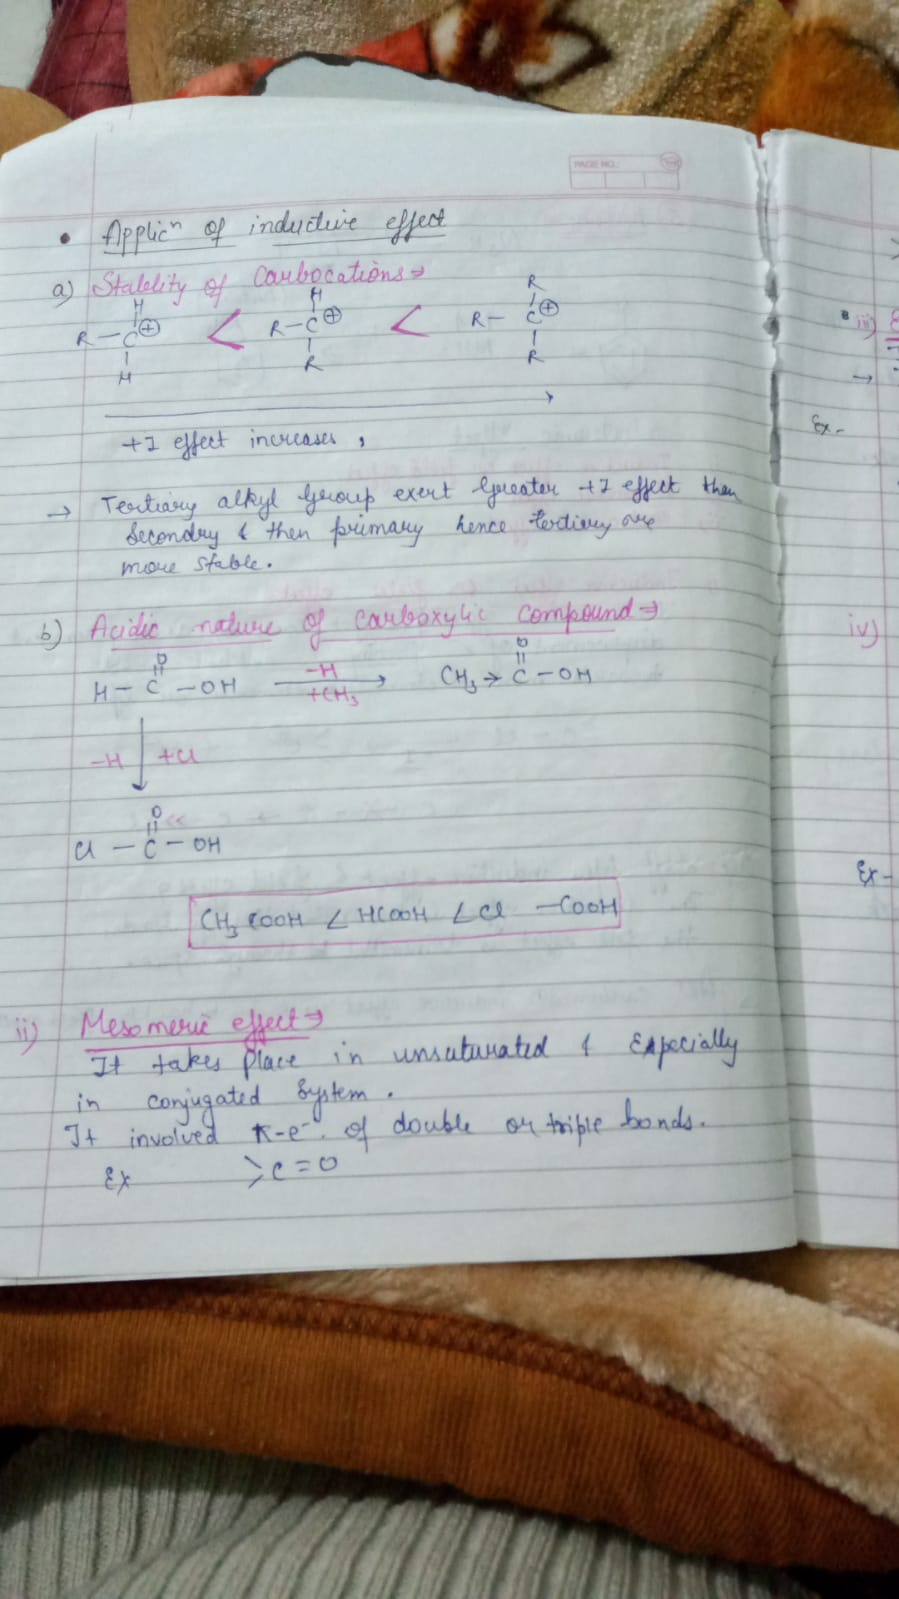 PAGE NO.:
• Applicⁿ of inductive effect
a) Stability of Carbocations →
H H R
R – C⊕ < R – C⊕ < R – C⊕
H R R
+I effect increases,
→ Tertiary alkyl Group exert Greater +I effect then
Secondry & then primary hence tertiary are
more stable.
b) Acidic nature of carboxylic compound →
O O
H – C – OH –H +CH₃ → CH₃ → C – OH
–H ↓ +Cl
O
Cl – C – OH
CH₃COOH < HCOOH < Cl – COOH
ii) Mesomeric effect →
It takes Place in unsaturated & Expecially
in conjugated System.
It involved π-e⁻. of double or triple bonds.
Ex >C=O
iii)
→
Ex -
iv)
Ex -